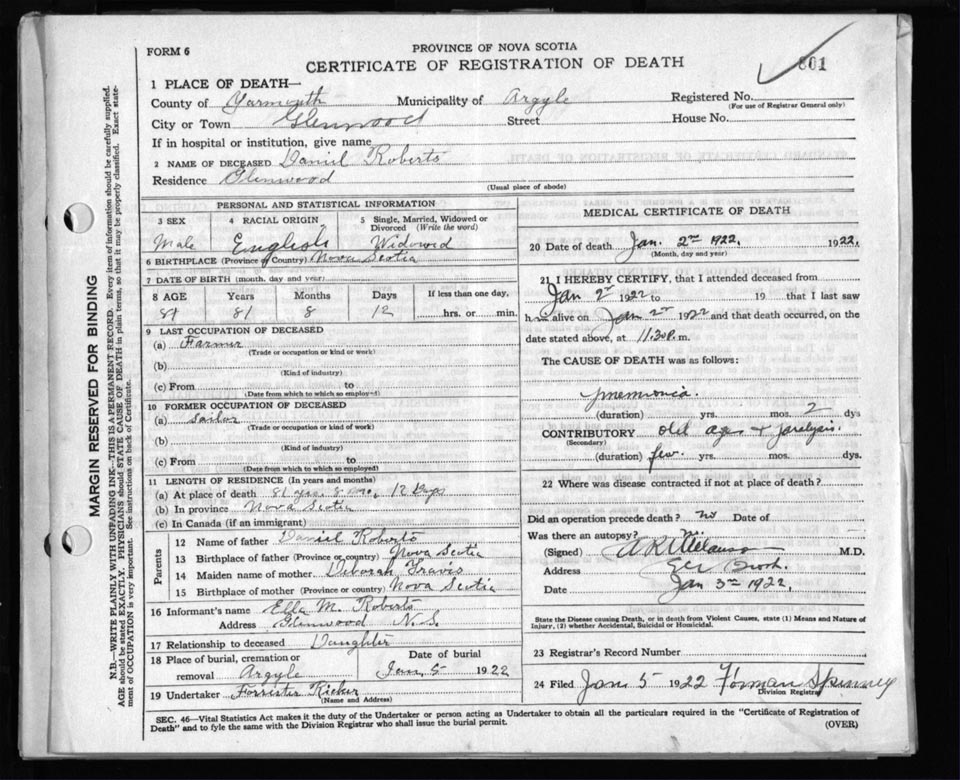 FORM 6
PROVINCE OF NOVA SCOTIA
CERTIFICATE OF REGISTRATION OF DEATH
801
1 PLACE OF DEATH—
County of Yarmouth Municipality of Argyle Registered No.
(For use of Registrar General only)
City or Town Glenwood Street House No.
If in hospital or institution, give name
2 NAME OF DECEASED Daniel Roberts
Residence Glenwood
(Usual place of abode)
PERSONAL AND STATISTICAL INFORMATION
3 SEX 4 RACIAL ORIGIN 5 Single, Married, Widowed or Divorced (Write the word)
Male English Widowed
6 BIRTHPLACE (Province or Country) Nova Scotia
7 DATE OF BIRTH (month, day and year)
8 AGE Years Months Days If less than one day,
81 8 12 hrs. or min.
9 LAST OCCUPATION OF DECEASED
(a) Farmer
(Trade or occupation or kind or work)
(b)
(Kind of industry)
(c) From to
(Date from which to which so employed)
10 FORMER OCCUPATION OF DECEASED
(a) Sailor
(Trade or occupation or kind of work)
(b)
(Kind of industry)
(c) From to
(Date from which to which so employed)
11 LENGTH OF RESIDENCE (In years and months)
(a) At place of death 81 yrs. 8 mo. 12 Days
(b) In province Nova Scotia
(c) In Canada (if an immigrant)
Parents
12 Name of father Daniel Roberts
13 Birthplace of father (Province or country) Nova Scotia
14 Maiden name of mother Deborah Travis
15 Birthplace of mother (Province or country) Nova Scotia
16 Informant's name Ella M. Roberts
Address Glenwood N.S.
17 Relationship to deceased Daughter
18 Place of burial, cremation or removal Argyle Date of burial Jan. 5 1922
19 Undertaker Forrester Ricker
(Name and Address)
MEDICAL CERTIFICATE OF DEATH
20 Date of death Jan. 2nd 1922. 1922.
(Month, day and year)
21 I HEREBY CERTIFY, that I attended deceased from
Jan 2nd 1922 to 19 that I last saw
h alive on Jan 2nd 1922 and that death occurred, on the
date stated above, at 11.30 P. m.
The CAUSE OF DEATH was as follows:
pnemonia.
(duration) yrs. mos. 2 dys
CONTRIBUTORY old age + paralysis.
(Secondary)
(duration) few yrs. mos. dys.
22 Where was disease contracted if not at place of death?
Did an operation precede death? no Date of
Was there an autopsy?
(Signed) M.D.
Address
Date Jan 3rd 1922.
State the Disease causing Death, or in death from Violent Causes, state (1) Means and Nature of
Injury, (2) whether Accidental, Suicidal or Homicidal.
23 Registrar's Record Number
24 Filed Jan 5 1922 Forman Spinney
Division Registrar
SEC. 46—Vital Statistics Act makes it the duty of the Undertaker or person acting as Undertaker to obtain all the particulars required in the "Certificate of Registration of
Death" and to fyle the same with the Division Registrar who shall issue the burial permit.
(OVER)
MARGIN RESERVED FOR BINDING
N.B.—WRITE PLAINLY WITH UNFADING INK—THIS IS A PERMANENT RECORD. Every item of information should be carefully supplied.
AGE should be stated EXACTLY. PHYSICIANS should STATE CAUSE OF DEATH in plain terms, so that it may be properly classified. Exact statement
of OCCUPATION is very important. See instructions on back of Certificate.